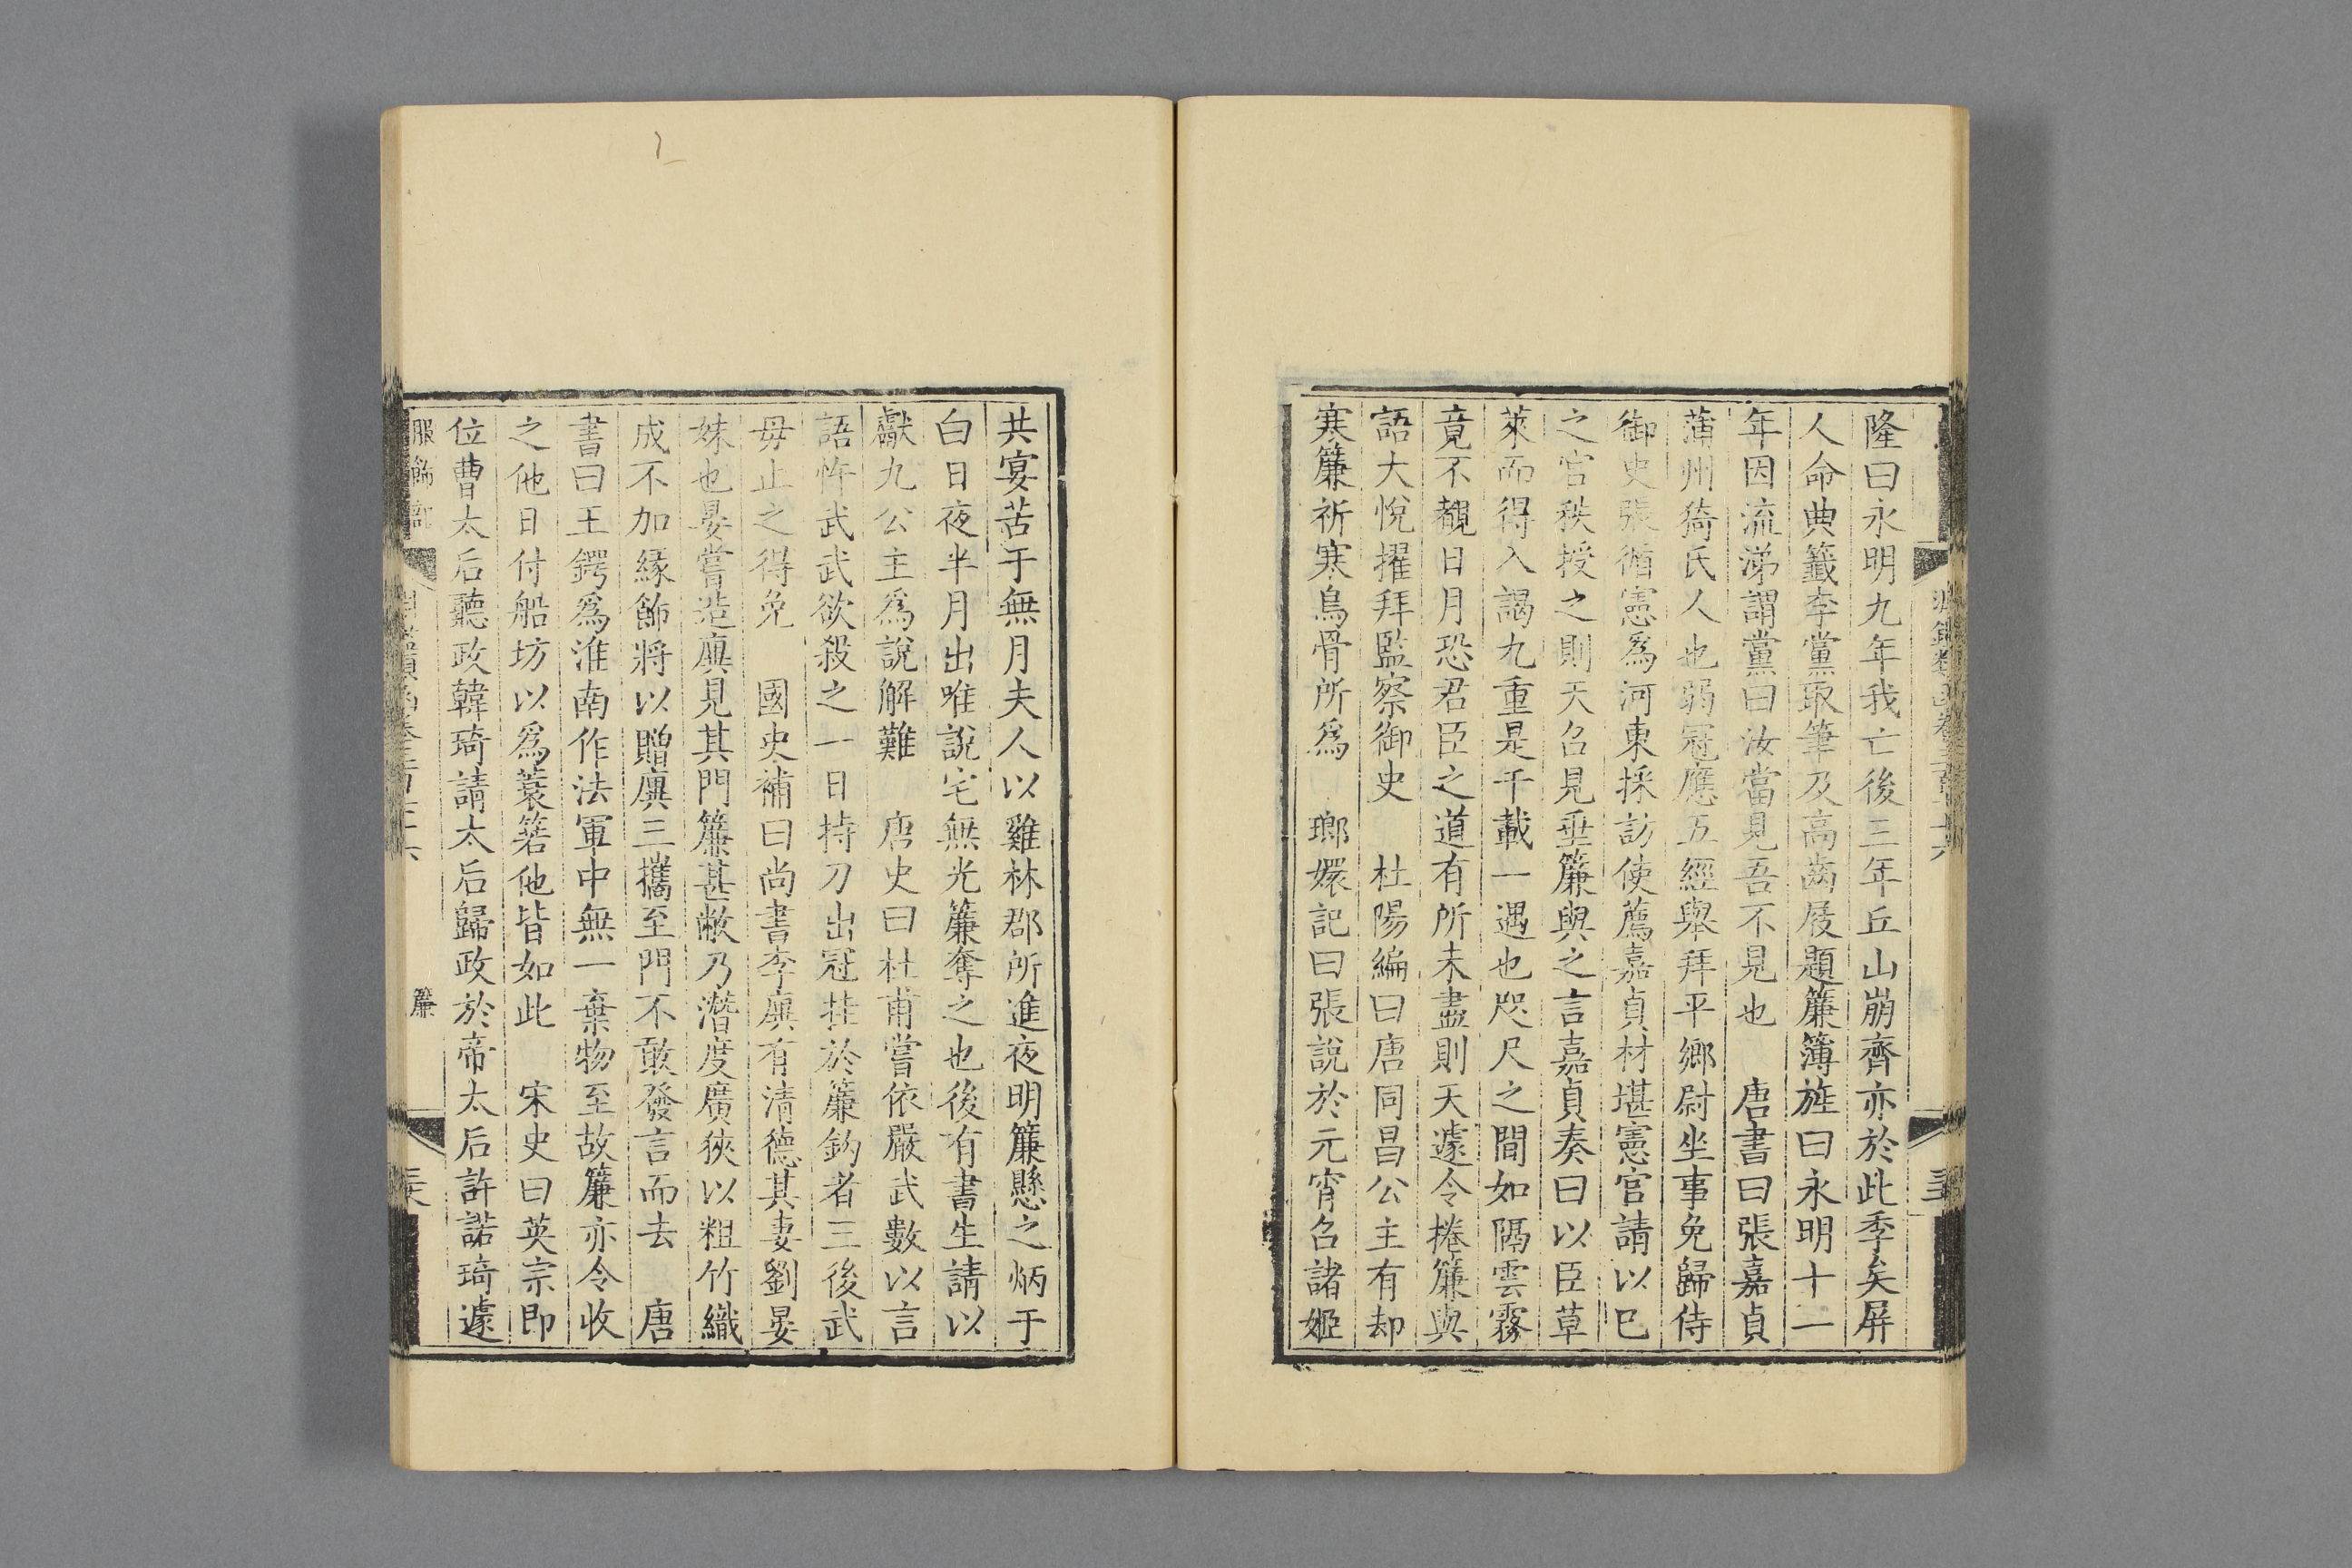 隆曰永明九年我亡後三年丘山崩齊亦於此季矣屏
人命典籤李黨取筆及高齒屐題簾簿旌曰永明十二
年因流涕謂黨曰汝當見吾不見也　唐書曰張嘉貞
蒲州猗氏人也弱冠應五經舉拜平鄉尉坐事免歸侍
御史張循憲爲河東採訪使薦嘉貞材堪憲官請以已
之官秩授之則天召見垂簾與之言嘉貞奏曰以臣草
萊而得入謁九重是千載一遇也咫尺之間如隔雲霧
竟不覩日月恐君臣之道有所未盡則天遽令捲簾與
語大悅擢拜監察御史　杜陽編曰唐同昌公主有却
寒簾祈寒鳥骨所爲　瑯嬛記曰張說於元宵召諸姬
共宴苦于無月夫人以雞林郡所進夜明簾懸之炳于
白日夜半月出唯說宅無光簾奪之也後有書生請以
獻九公主爲說解難　唐史曰杜甫嘗依嚴武數以言
語忤武武欲殺之一日持刀出冠挂於簾鈎者三後武
毋止之得免　國史補曰尚書李廙有清德其妻劉晏
妹也晏嘗造廙見其門簾甚敝乃潛度廣狹以粗竹織
成不加緣飾將以贈廙三攜至門不敢發言而去　唐
書曰王鍔爲淮南作法軍中無一棄物至故簾亦令收
之他日付船坊以爲蓑箬他皆如此　宋史曰英宗即
位曹太后聽政韓琦請太后歸政於帝太后許諾琦遽
服飾部
簾